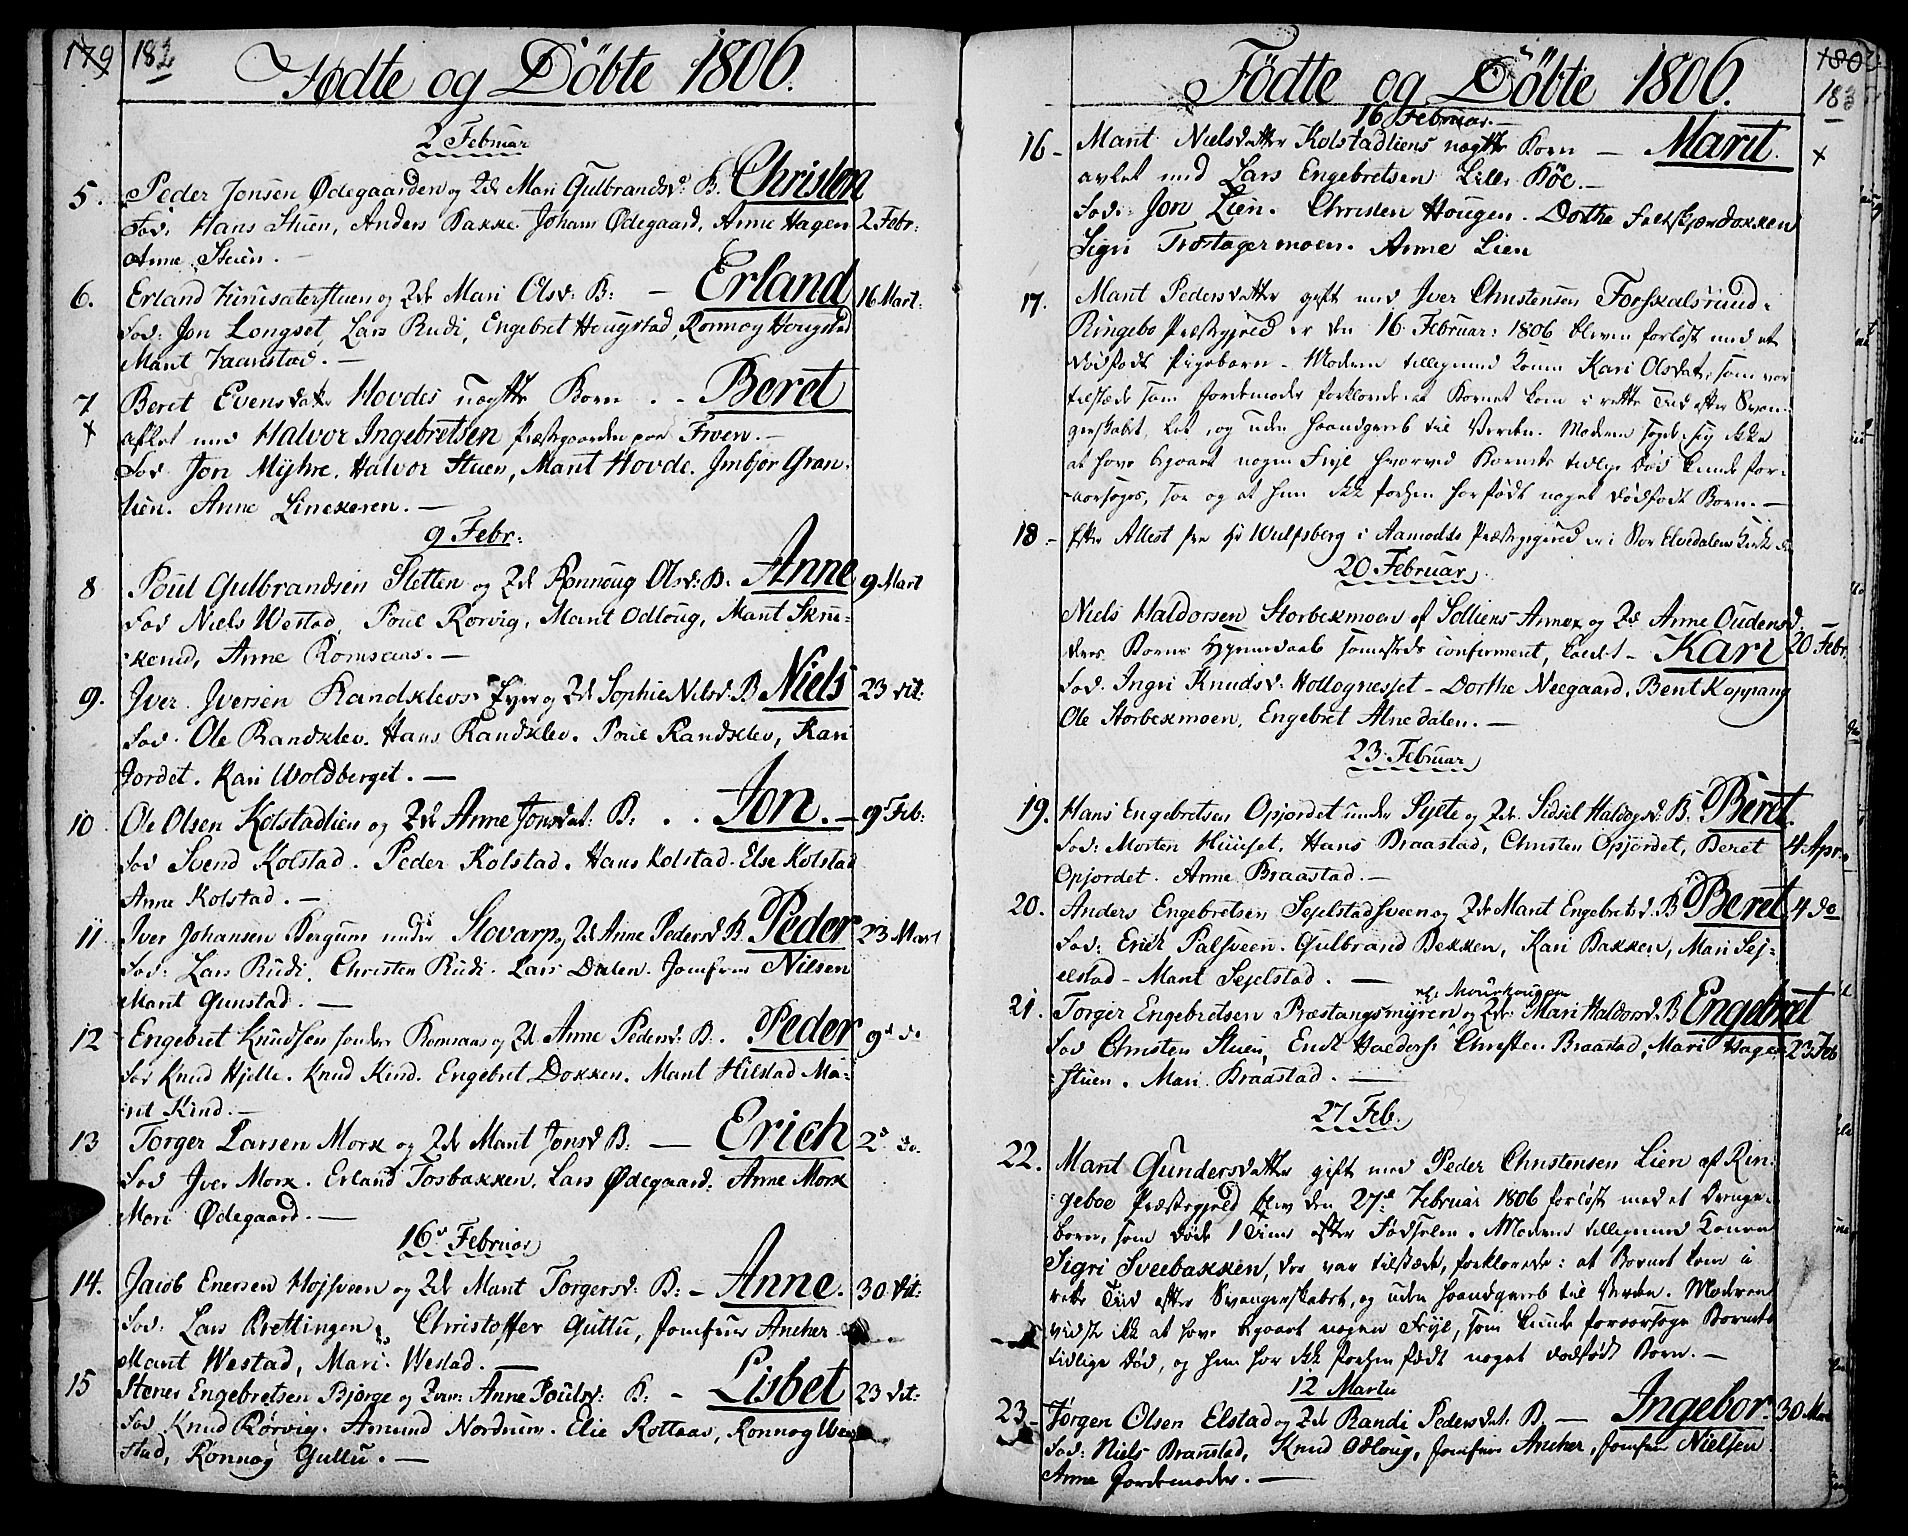 179 182
Fødte og Döbte 1806.
2 Februar
5. Peder Jonsen Ødegaarden og Hd. Mari Gulbrandsd. B. Christen
Fad. Hans Stuen, Anders Bakke. Johans Ødegaard, Anne Hagen 2 Febr:
Anne Steien. —
6. Erland og Hd. Mari Olsd: B: — Erland 16 Mart:
Fad: Jon Longset, Lars Rudi, Engebret Hougstad, Ronnog Hougstad
Marit Haarstad. —
7 Beret Evensdatr Hovdes uægte Born . - Beret
x aflet med Halvor Ingebretsen Præstegaarden paa Froen. —
Fad Jon Myhre, Halvor Stuen, Marit Hovde. Jmbjor Gran-
lien. Anne Linekeren. —
9 Febr:
8 Poul Gulbrandsen Sletten og Hd. Ronnoug Olsd: B: Anne 9 Mart
Fad Niels Westad, Poul Rorvig, Marit Odloug, Marit Skru-
Anne Romsaas. —
9. Jver Jversen Randklevs Eyer og Hd Sophie Nilsd: B Niels 23 dit:
Fad. Ole Randklev. Hans Randklev. Poul Randklev, Kari
Jordet. Kari Woldberget. —
10 Ole Olsen Kolstadlien og Hd Anne Jonsdat: B: . . Jon. — 9 Feb:
Fad Svend Kolstad. Peder Kolstad. Hans Kolstad. Else Kolstad
Anne Kolstad. —
11 Jver Johansen Bergum under Slovarp og Hd Anne Pedersd B. Peder 23 Mart
Fad: Lars Rudi. Christen Rudi. Lars Dalen. Jomfrue Nilsen
Marit Gunstad. —
12 Engebret Knudsen sondre Romsaas og Hd Anne Pedersd: B: . Peder 9d do
Fad Knud Hjelle. Knud Kind. Engebret Dokken. Marit Hilstad Ma-
rit Kind. —
13 Torger Larsen Mork og Hd Marit Jonsd B: — Erich 2d do.
Fad Jver Mork. Erland Fosbakken. Lars Ødegaard: Anne Mork
Mari Ødegaard. —
16d Februar
14. Jacob Enersen Hojsveen og Hd Marit Torgersd: B: - Anne. 30 dit:
Fad: Lars Brettingen, Christoffer Guttu, Jomfrue Ancher
Marit Westad, Mari Westad. —
15 Stener Engebretsen Bjorge og Hd: Anne Poulsd: B: - Lisbet 23 dit:
Fad Knud Rørvig. Amund Nordrum. Elie Rottaas, Ronnog We-
stad, Ronnog Guttu. —
Födte og Döbte 1806. 180
183
16 Februar. —
16 - Marit Nielsdatter Kolstadliens uægte Born — Marit. x
avlet med Lars Engebretsen Lille Böe. —
Fad: Jon Lien. Christen Hougen. Dorthe
Sigri Trostagermoen. Anne Lien
17. Marit Pedersdatter gift med Jver Christensen
Ringebo Præstegjeld er den 16 Februar: 1806 bleven forløst med et
dødfødt Pigebarn. Moderen tilligemed Konen Kari Olsdat: som var
tilstæde som Jordemoder forklarede at Barnet kom i rette Tid efter Svan-
gerskabet, let, og uden Haandgreb til Verden. Moderen sagde sig ikke
at have begaaet nogen Feyl hvorved Barnets tidlige Død kunde for-
aarsages, saa og at hun ikke forhen har født noget dødfødt Barn. —
18 - Efter Attest fra Hr Wulfsberg i Aamodts Præstegjeld er i Stor Elvedalens Kirke den
20 Februar
Niels Haldorsen Storbekmoen af Solliens Annex og Hd Anne Oudensd.
deres Barns Hjemmedaab samesteds confirmeret, kaldet - Kari 20 Febr.
Fad. Ingri Knudsd: Hollogneset - Dorthe Neegaard. Berit Koppang
Ole Storbekmoen, Engebret Atnedalen. —
23 Februar
19. Hans Engebretsen Opjordet under Sylte og Hd. Sidsel Haldorsd: B: Beret.
Fad: Morten Huuset, Hans Braastad, Christen Opjordet, Beret 4 Apr:
Opjordet. Anne Braastad. —
20. Anders Engebretsen Sejelstadsveen og Hd Marit Engebretsd. B Beret 4 do
Fad: Erich Palsveen. Gulbrand Bekken, Kari Bakken, Mari Sej-
elstad - Marit Sejelstad. —
21. Torger Engebretsen Præstangsmyren og Hd: Mari Haldorsd. B Engebret
Fad Christen Stuen, Christen Braastad, Mari Hagen 23 Feb
stuen. Mari Braastad. —
27 Feb.
22. Marit Gundersdatter gift med Peder Christensen Lien af Rin-
geboe Præstegjeld blev den 27de Februar 1806 forløst med et Drenge-
barn, som døde 1 Time efter Fødselen. Moderen tilligemed Konen
Sigri Sveebakken, der var tilstæde, forklarede: at Barnet kom i
rette Tid efter Svangerskabet, og uden Haandgreb til Verden. Moderen
vidste ikke at have begaaet nogen Feyl, som kunde foraarsage Barnets
tidlige Død, og hun har ikke forhen født noget dødfødt Barn. —
12 Martii
23 - Jörgen Olsen Elstad og Hd Randi Pedersdat: B. — Ingebor. 30 Mart
Fad: Niels Branstad, Knud Odloug, Jomfrue Ancher, Jomfrue Nielsen
Anne Jordemoder. —